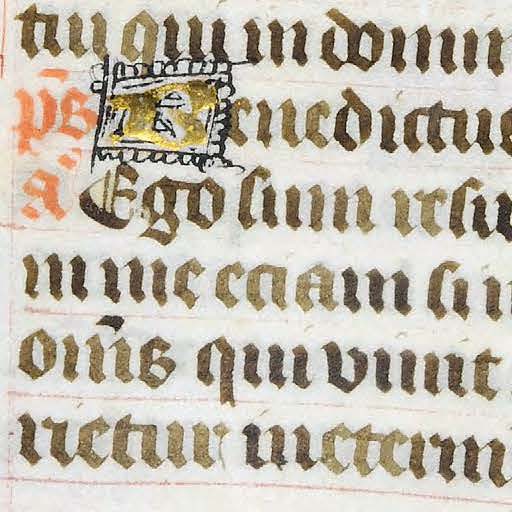 tuu qui in domin
ps̄ Benedictus
a Ego sum resu
in me etiam si m
om̄s qui viuit
rietur ineternu